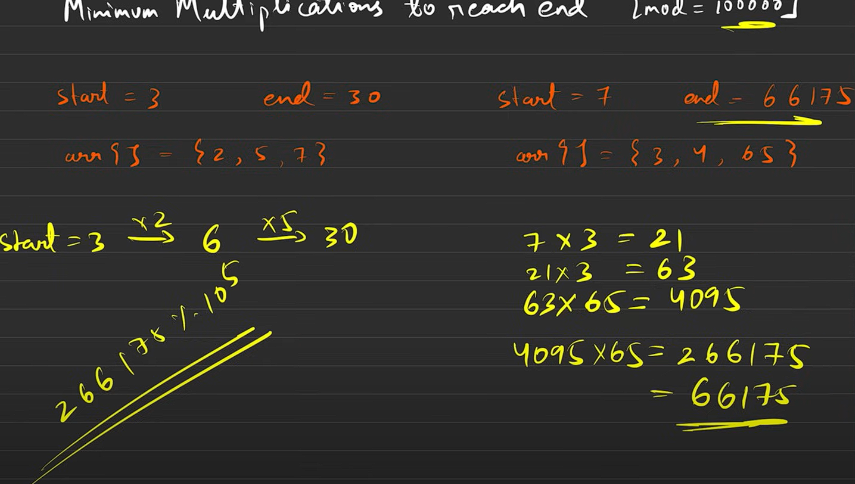 Minimum Multiplications to reach end [mod = 100000]
start = 3 end = 30
arr[] = {2, 5, 7}
start = 3 ×2→ 6 ×5→ 30
266175 % 10^5
start = 7 end = 66175
arr[] = {3, 4, 65}
7 × 3 = 21
21 × 3 = 63
63 × 65 = 4095
4095 × 65 = 266175
= 66175